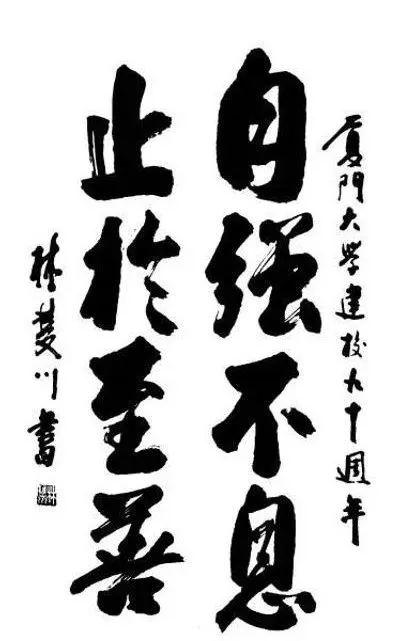 廈門大學建校九十週年
自强不息
止於至善
林川書